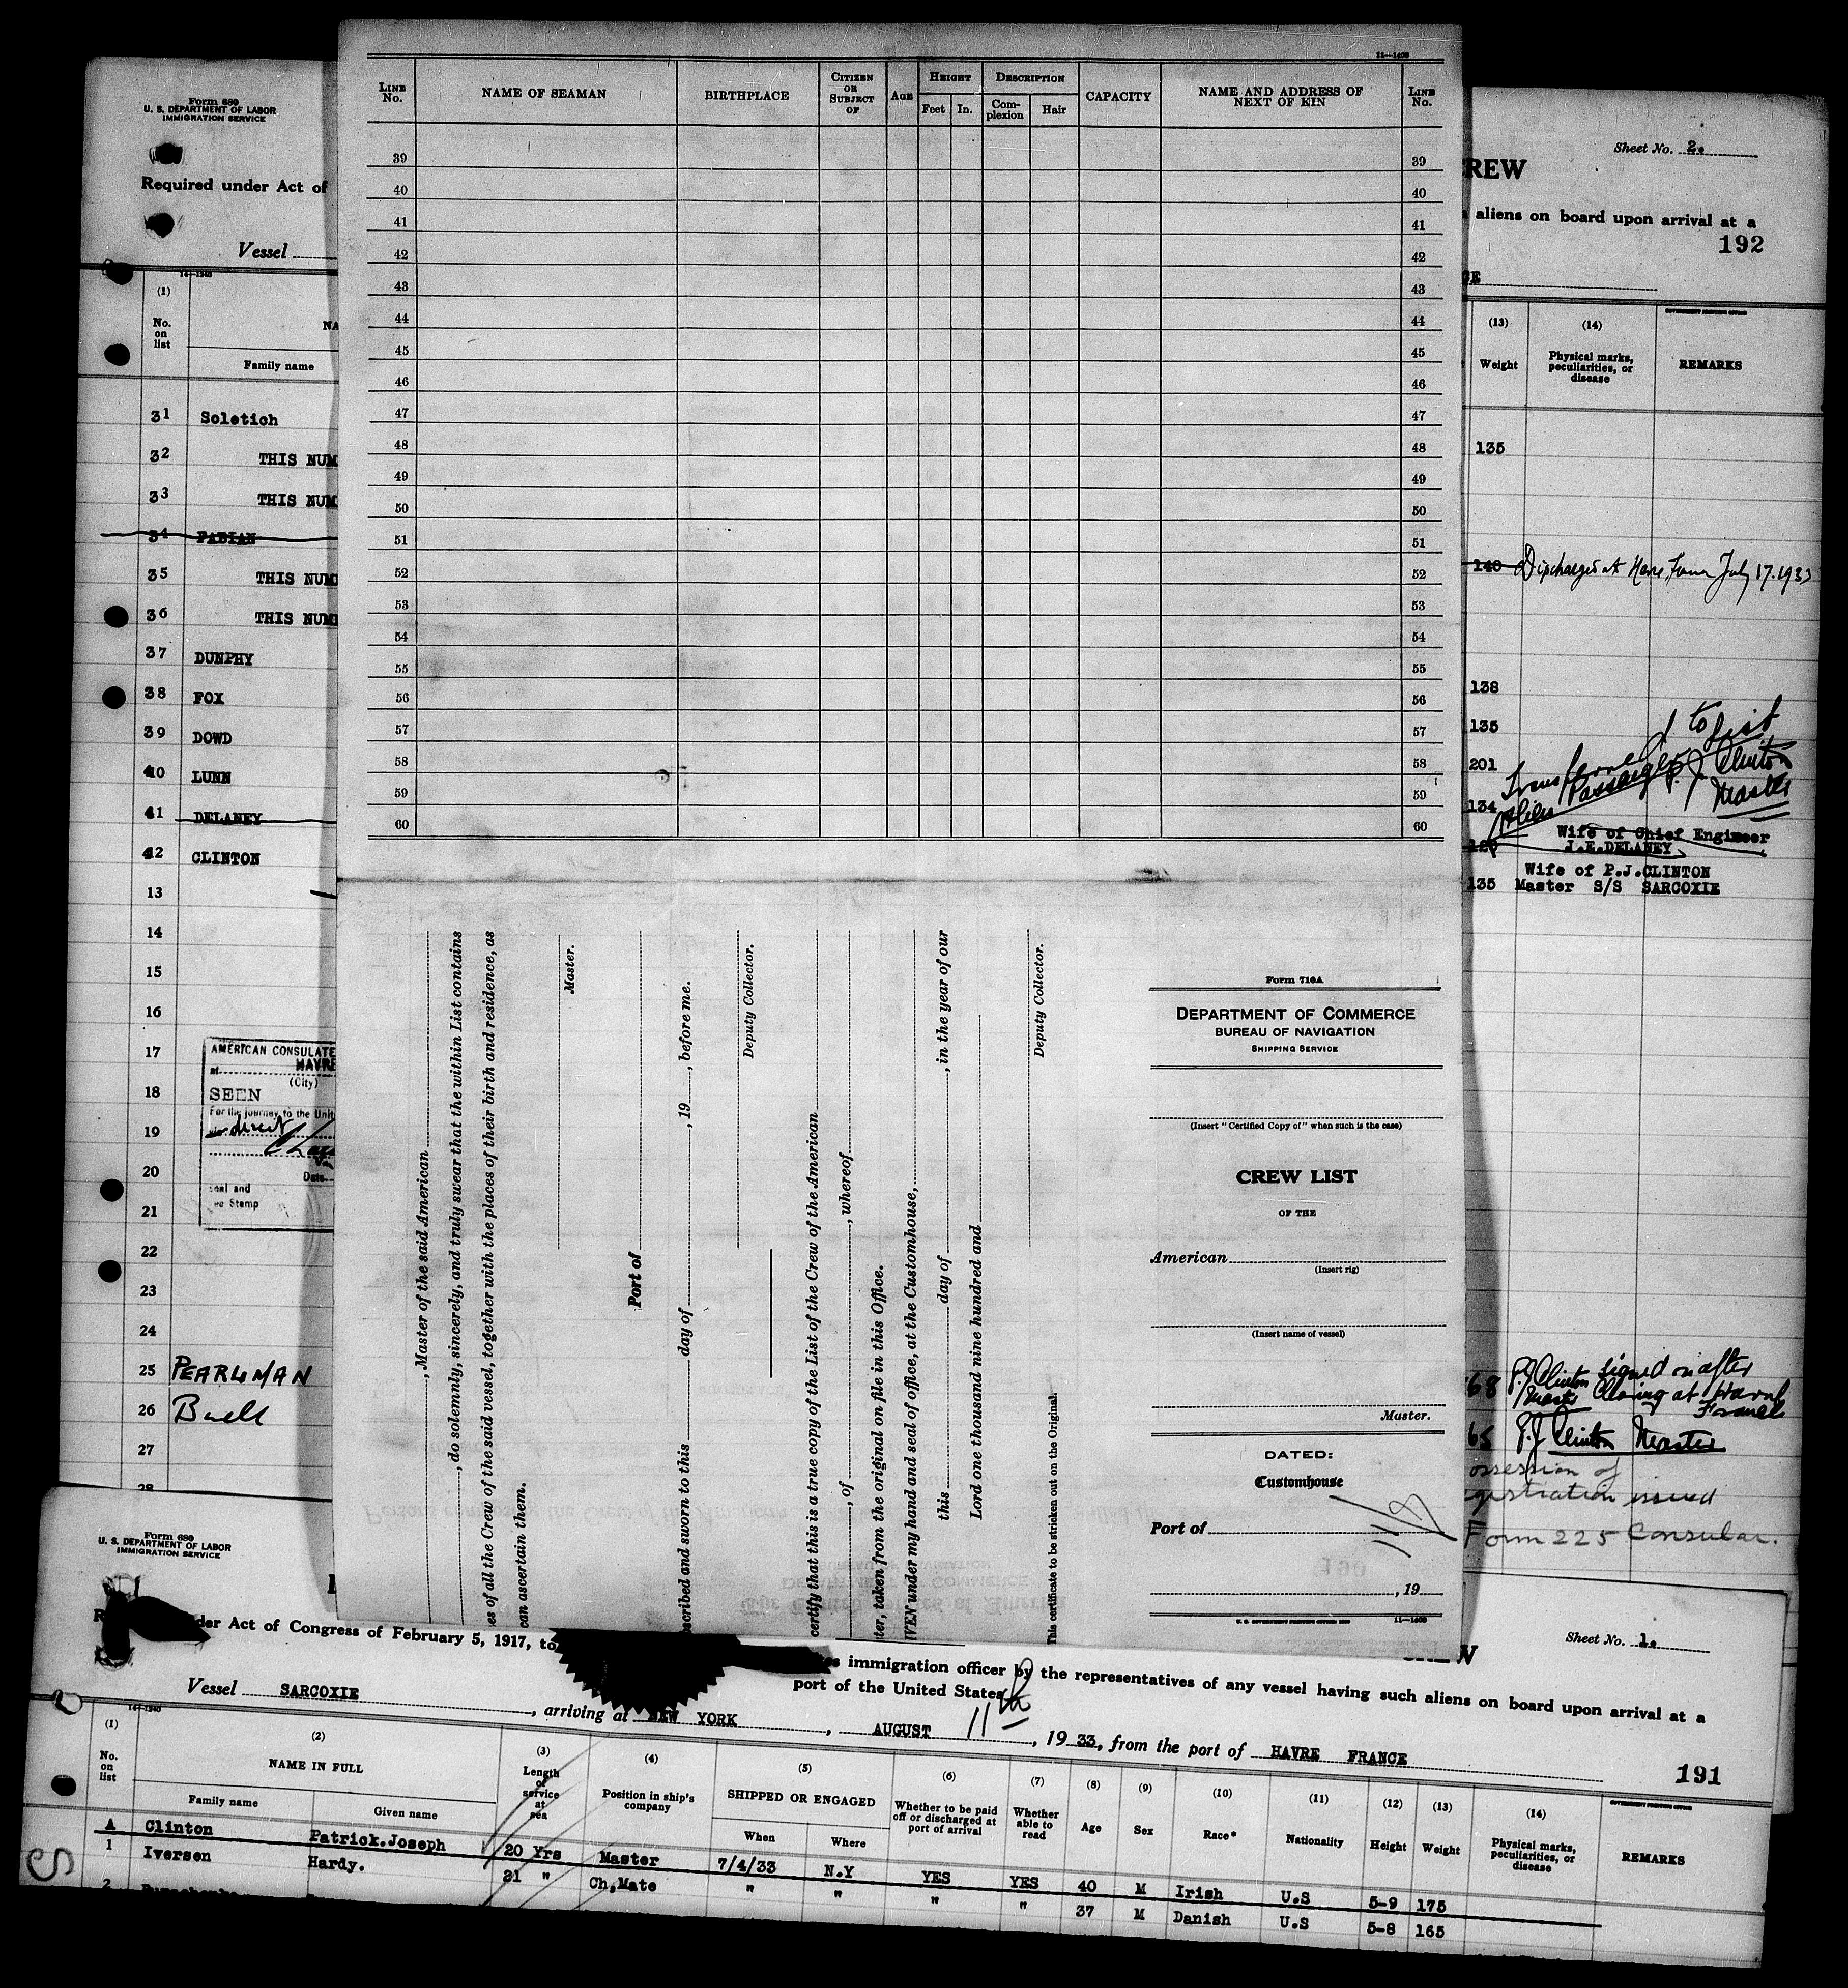 11—1408
LINE No. NAME OF SEAMAN BIRTHPLACE CITIZEN OR SUBJECT OF AGE HEIGHT Feet In. DESCRIPTION Complexion Hair CAPACITY NAME AND ADDRESS OF NEXT OF KIN LINE No.
39 39
40 40
41 41
42 42
43 43
44 44
45 45
46 46
47 47
48 48
49 49
50 50
51 51
52 52
53 53
54 54
55 55
56 56
57 57
58 58
59 59
60 60
Form 680
U. S. DEPARTMENT OF LABOR
IMMIGRATION SERVICE
Required under Act of
Vessel
14—1240
(1)
No. on list
NA
Family name
31 Soletich
32 THIS NUM
33 THIS NUM
34 FABIAN
35 THIS NUM
36 THIS NUM
37 DUNPHY
38 FOX
39 DOWD
40 LUNN
41 DELANEY
42 CLINTON
13
14
15
16
17
18
19
20
21
22
23
24
25 PEARLMAN
26 Buell
27
28
AMERICAN CONSULATE
at HAVRE
(City)
SEEN
For the journey to the Unit
direct
Date
Stamp
REW
Sheet No. 2.
aliens on board upon arrival at a
192
(13) (14)
Weight Physical marks, peculiarities, or disease REMARKS
135
140 Discharged at Havre, France July 17. 1933
138
135
201
134
Transferred to list
Alien Passenger P. J. Clinton
Master
Wife of Chief Engineer
J.E.DELANEY
Wife of P.J.CLINTON
135 Master S/S SARCOXIE
68 P.J. Clinton signed on after
Master Clearing at Havre
France
65 P.J. Clinton Master
ossession of
gistration issued
Form 225 Consular.
, Master of the said American
, do solemnly, sincerely, and truly swear that the within List contains
es of all the Crew of the said vessel, together with the places of their birth and residence, as
can ascertain them.
Master.
Port of
scribed and sworn to this day of , 19 , before me.
Deputy Collector.
certify that this is a true copy of the List of the Crew of the American
, of , whereof
ter, taken from the original on file in this Office.
IVEN under my hand and seal of office, at the Customhouse,
this day of , in the year of our
Lord one thousand nine hundred and
Deputy Collector.
This certificate to be stricken out on the Original.
Form 710A
DEPARTMENT OF COMMERCE
BUREAU OF NAVIGATION
SHIPPING SERVICE
(Insert "Certified Copy of" when such is the case)
CREW LIST
OF THE
American
(Insert rig)
(Insert name of vessel)
Master.
DATED:
Customhouse
Port of
, 19
11—1408
Form 680
U. S. DEPARTMENT OF LABOR
IMMIGRATION SERVICE
Sheet No. 1.
der Act of Congress of February 5, 1917, to
immigration officer by the representatives of any vessel having such aliens on board upon arrival at a
port of the United States
Vessel SARCOXIE , arriving at NEW YORK , AUGUST 11th , 19 33, from the port of HAVRE FRANCE
191
14—1240
(1) (2) (3) (4) (5) (6) (7) (8) (9) (10) (11) (12) (13) (14)
No. on list NAME IN FULL Length of service at sea Position in ship's company SHIPPED OR ENGAGED Whether to be paid off or discharged at port of arrival Whether able to read Age Sex Race* Nationality Height Weight Physical marks, peculiarities, or disease REMARKS
Family name Given name When Where
A Clinton Patrick.Joseph 20 Yrs Master 7/4/33 N.Y YES YES 40 M Irish U.S 5-9 175
1 Iversen Hardy. 21 " Ch,Mate " " " " 37 M Danish U.S 5-8 165
2